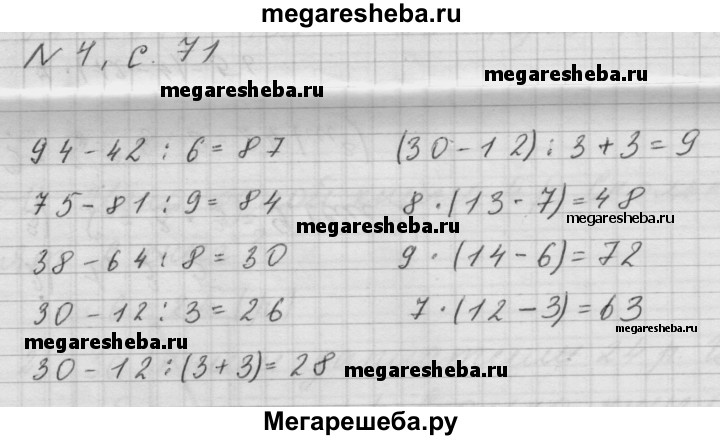 megaresheba.ru
N 4, с. 71
megaresheba.ru
megaresheba.ru
94 - 42 : 6 = 87
(30 - 12) : 3 + 3 = 9
75 - 81 : 9 = 84
8 · (13 - 7) = 48
megaresheba.ru
megaresheba.ru
38 - 64 : 8 = 30
9 · (14 - 6) = 72
30 - 12 : 3 = 26
7 · (12 - 3) = 63
megaresheba.ru
megaresheba.ru
30 - 12 : (3 + 3) = 28
megaresheba.ru
Мегарешеба.ру